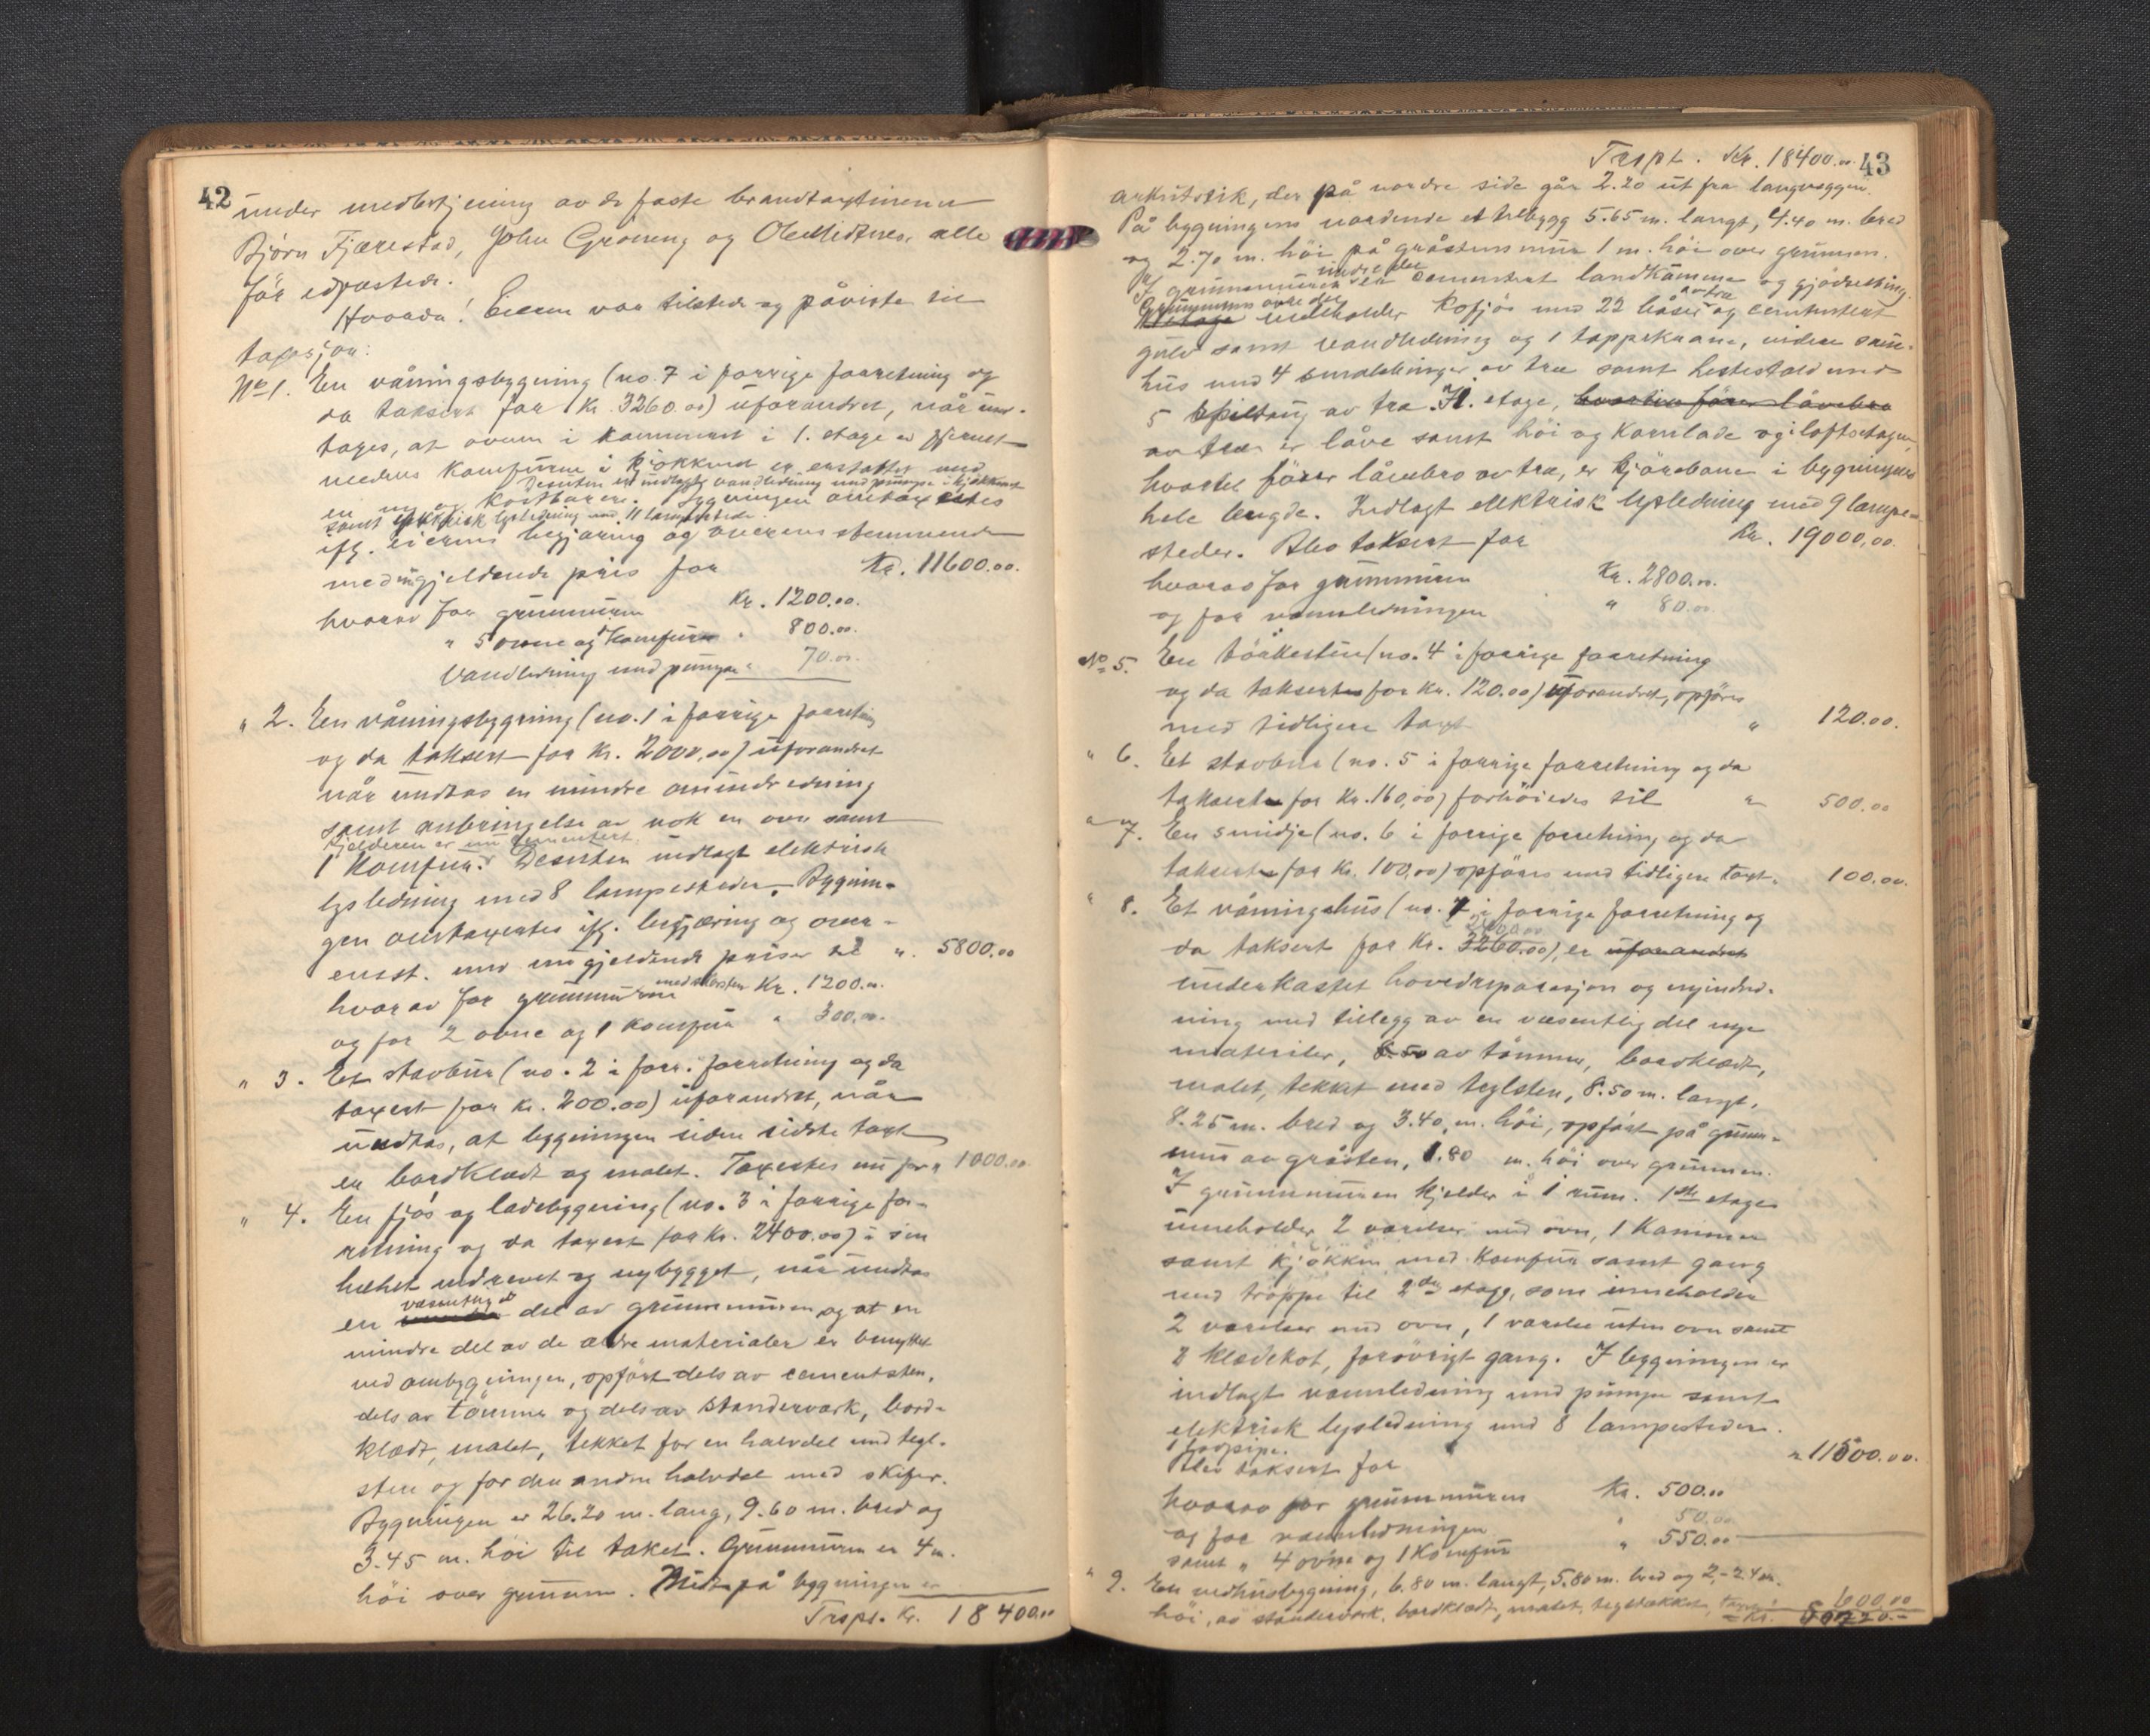 42
under medbetjening av de faste brandtaxtmenn
Bjørn Fjærestad, John Grøneng og Ole Midtnes, alle
før edfæstede.
Hvorda! Eieren var tilstede og påviste til
taxasjon:
No 1. En våningsbygning (no. 7 i forrige forretning og
da taksert for kr. 3260.00) uforandret, når und-
tages, at ovnen i kammeret i 1. etage er fjernet
medens komfuren i kjøkkenet er erstattet med
Desuten er indlagt vandledning med pumpe i kjøkkenet
en ny og kostbarere. Bygningen omtaxertes
samt elektrisk lysledning med 11 lampesteder
iflg. eierens begjæring og overensstemmende
med nugjeldende pris for Kr. 11600.00.
hvorav for grunnmuren Kr. 1200.00.
" 5 ovne og 1 komfur " 800.00.
Vandledning med pumpe " 70.00.
" 2. En våningsbygning (no. 1 i forrige forretning
og da taksert for kr. 2000,00) uforandret
når undtas en mindre omindredning
samt anbringelse av nok en ovn samt
Kjelderen er nu cementert.
1 komfur. Desuten indlagt elektrisk
lysledning med 8 lampesteder. Bygnin-
gen omtaxertes iflg. begjæring og over-
ensst. med nugjeldende priser til ". 5800,00
hvorav for grunnmuren med skorsten Kr. 1200.00.
og for 2 ovne og 1 komfur " 300.00.
" 3. Et stavbur (no. 2 i forr. forretning og da
taxert for kr. 200.00) uforandret, når
undtas, at bygningen siden sidste taxt
er bordklædt og malet. Taxertes nu for " 1000.00
" 4. En fjøs og ladebygning (no. 3 i forrige for-
retning og da taxert for kr. 2400.00) i sin
helhet nedrevet og nybygget, når undtas
en væsentlig del av grunnmuren og at en
mindre del av de ældre materialer er benyttet
ved ombygningen, opført dels av cementsten,
dels av tømmer og dels av standerverk, bord-
klædt, malet, tekket for en halvdel med tegl-
sten og for den andre halvdel med skifer.
Bygningen er 26.20 m. lang, 9.60 m. bred og
3.45 m. høi til taket. Grunnmuren er 4 m.
høi over grunnen. Midt på bygningen er
Trspt. Kr. 18400.00
Trspt. Kr. 18400.00 43
der på nordre side går 2.20 ut fra langveggen.
På bygningens nordende et tilbygg 5.65 m. langt, 4.40 m. bred
og 2.70 m. høi på gråstensmur 1 m. høi over grunnen.
I grunnmuren nedre del er cementert landkumme og gjødselbing.
Grunnmuren øvre del
inneholder kofjøs med 22 båser av tre og cementert
gulv samt vandledning og 1 tappekrane, videre saue-
hus med 4 avdelinger av træ samt hestestald med
5 spiltaug av træ. II. etage, hvortil fører låvebro
av træ er låve samt høi og kornlade og i loftsetagen,
hvortil fører låvebro av træ, er kjørebane i bygningens
hele lengde. Indlagt elektrisk lysledning med 9 lampe-
steder. Blev taksert for Kr. 19000,00.
hvorav for grunnmuren Kr. 2800.00.
og for vannledningen " 80.00
No 5. En tørkestue (no. 4 i forrige forretning
og da taksert for kr. 120.00) uforandret, opføres
med tidligere taxt " 120.00.
" 6. Et stavbur (no. 5 i forrige forretning og da
taksert for kr. 160,00) forhøiedes til " 500.00
" 7. En smidje (no. 6 i forrige forretning og da
taksert for kr. 100,00) opføres med tidligere taxt " 100.00.
" 8. Et våningshus (no. 7 i forrige forretning og
da taksert for kr. 3260.00), er uforandret
underkastet hovedreparasjon og nyindred-
ning med tillegg av en væsentlig del nye
materialer, 8.50 av tømmer, bordklædt,
malet, tekket med teglsten, 8.50 m. langt,
8.25 m. bred og 3.40 m. høi, opført på grunn-
mur av gråsten, 1.80 m. høi over grunnen.
I grunnmuren kjelder i 1 rum. 1ste etage
inneholder 2 værelser med ovn, 1 kammer
samt kjøkken med komfur samt gang
med trappe til 2den etage, som inneholder
2 værelser med ovn, 1 værelse uten ovn samt
2 klædekot, forøvrigt gang. I bygningen er
indlagt vannledning med pumpe samt
elektrisk lysledning med 8 lampesteder.
Blev taksert for " 11500.00.
hvorav for grunnmuren Kr. 500.00
og for vannledningen " 50.00
samt " 4 ovne og 1 komfur " 550.00
" 9. En vedhusbygning, 6.80 m. langt, 5.80 m. bred og 2,-2.4 m.
høi, av standerverk, bordklædt, malet, teglstækket, 600.00